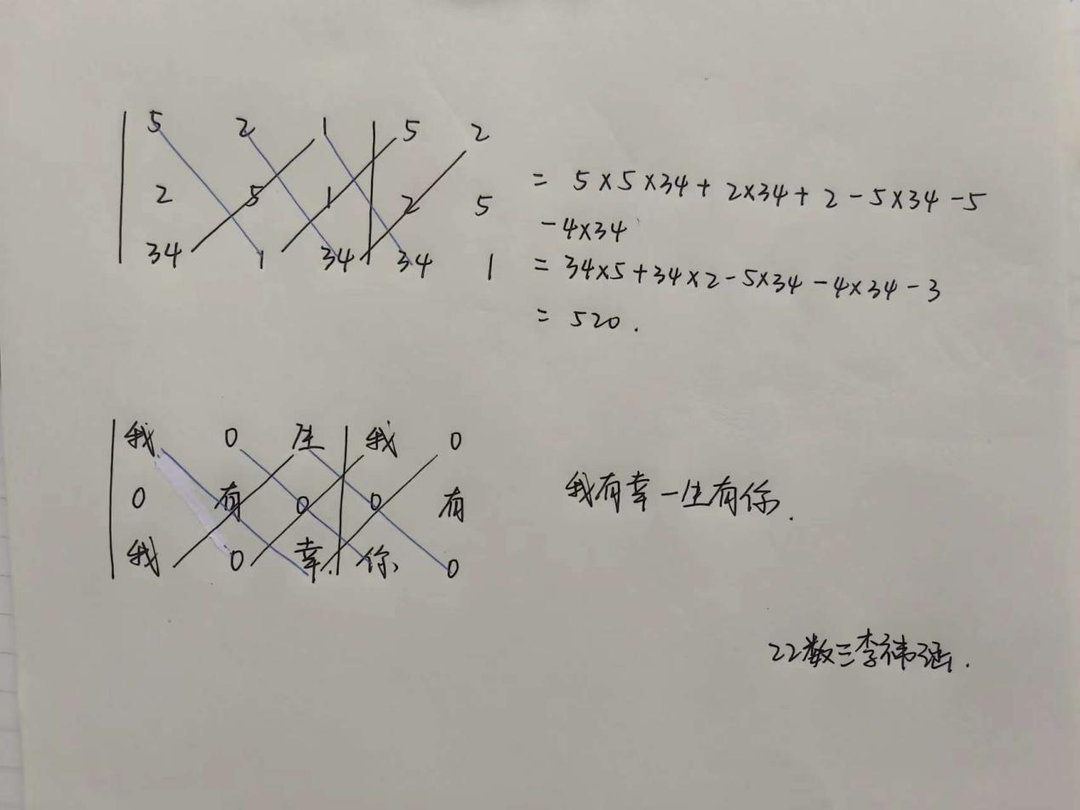 5 2 1 | 5 2
2 5 1 2 5
34 1 34 34 1
= 5×5×34+2×34+2-5×34-5
-4×34
= 34×5+34×2-5×34-4×34-3
= 520.
我 0 生 | 我 0
0 有 0 0 有
我 0 幸 你 0
我有幸一生有你.
22数三李祎涵.